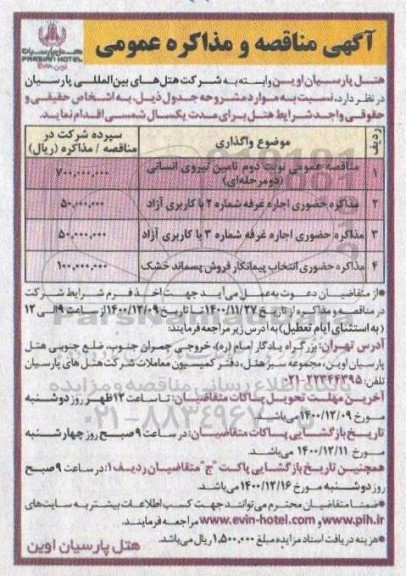 آگهی مناقصه و مذاکره عمومی
هتل پارسیان
PARSIAN HOTEL
هتل پارسیان اوین وابسته به شرکت هتل‌های بین‌المللی پارسیان
در نظر دارد، نسبت به موارد مشروحه جدول ذیل، به اشخاص حقیقی و
حقوقی واجد شرایط هتل برای مدت یکسال شمسی اقدام نماید.
ردیف
موضوع واگذاری
سپرده شرکت در مناقصه / مذاکره (ریال)
۱ مناقصه عمومی نوبت دوم تامین نیروی انسانی (دومرحله‌ای) ۷۰۰,۰۰۰,۰۰۰
۲ مذاکره حضوری اجاره غرفه شماره ۲ با کاربری آزاد ۵۰,۰۰۰,۰۰۰
۳ مذاکره حضوری اجاره غرفه شماره ۳ با کاربری آزاد ۵۰,۰۰۰,۰۰۰
۴ مذاکره حضوری انتخاب پیمانکار فروش پسماند خشک ۱۰۰,۰۰۰,۰۰۰
*از متقاضیان دعوت به عمل می‌آید جهت اخذ فرم شرایط شرکت
در مناقصه و مذاکره از تاریخ ۱۴۰۰/۱۱/۲۷ تا تاریخ ۱۴۰۰/۱۲/۰۹ از ساعت ۹ الی ۱۲
(به استثنای ایام تعطیل) به آدرس زیر مراجعه فرمایند:
آدرس تهران: بزرگراه یادگار امام (ره)، خروجی چمران جنوب، ضلع جنوبی هتل
پارسیان اوین، مجموعه سبز هتل، دفتر کمیسیون معاملات شرکت هتل های پارسیان
تلفن: ۲۲۳۴۲۳۹۵-۰۲۱
آخرین مهلت تحویل پاکات متقاضیان: تا ساعت ۱۲ ظهر روز دوشنبه
مورخ ۱۴۰۰/۱۲/۰۹ می‌باشد.
تاریخ بازگشایی پاکات متقاضیان: در ساعت ۹ صبح روز چهارشنبه
مورخ ۱۴۰۰/۱۲/۱۱ می‌باشد.
همچنین تاریخ بازگشایی پاکت "ج" متقاضیان ردیف ۱: در ساعت ۹ صبح
روز دوشنبه مورخ ۱۴۰۰/۱۲/۱۶ می‌باشد.
*ضمنا متقاضیان محترم می‌توانند جهت کسب اطلاعات بیشتر به سایت‌های
www.pih.ir و www.evin-hotel.com مراجعه فرمایند.
*هزینه دریافت اسناد مزایده مبلغ ۱,۵۰۰,۰۰۰ ریال می‌باشد.
هتل پارسیان اوین